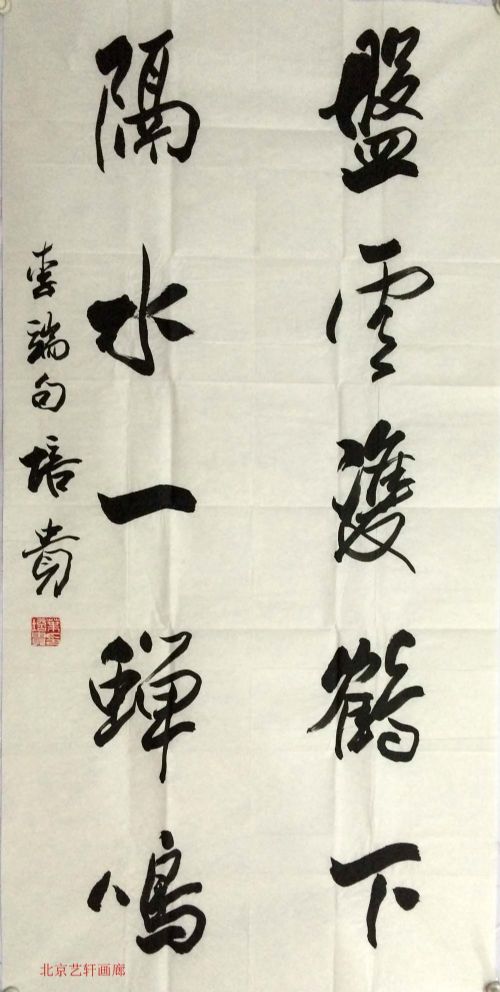 盤雲雙鶴下
隔水一蟬鳴
李端句 培贵
北京艺轩画廊